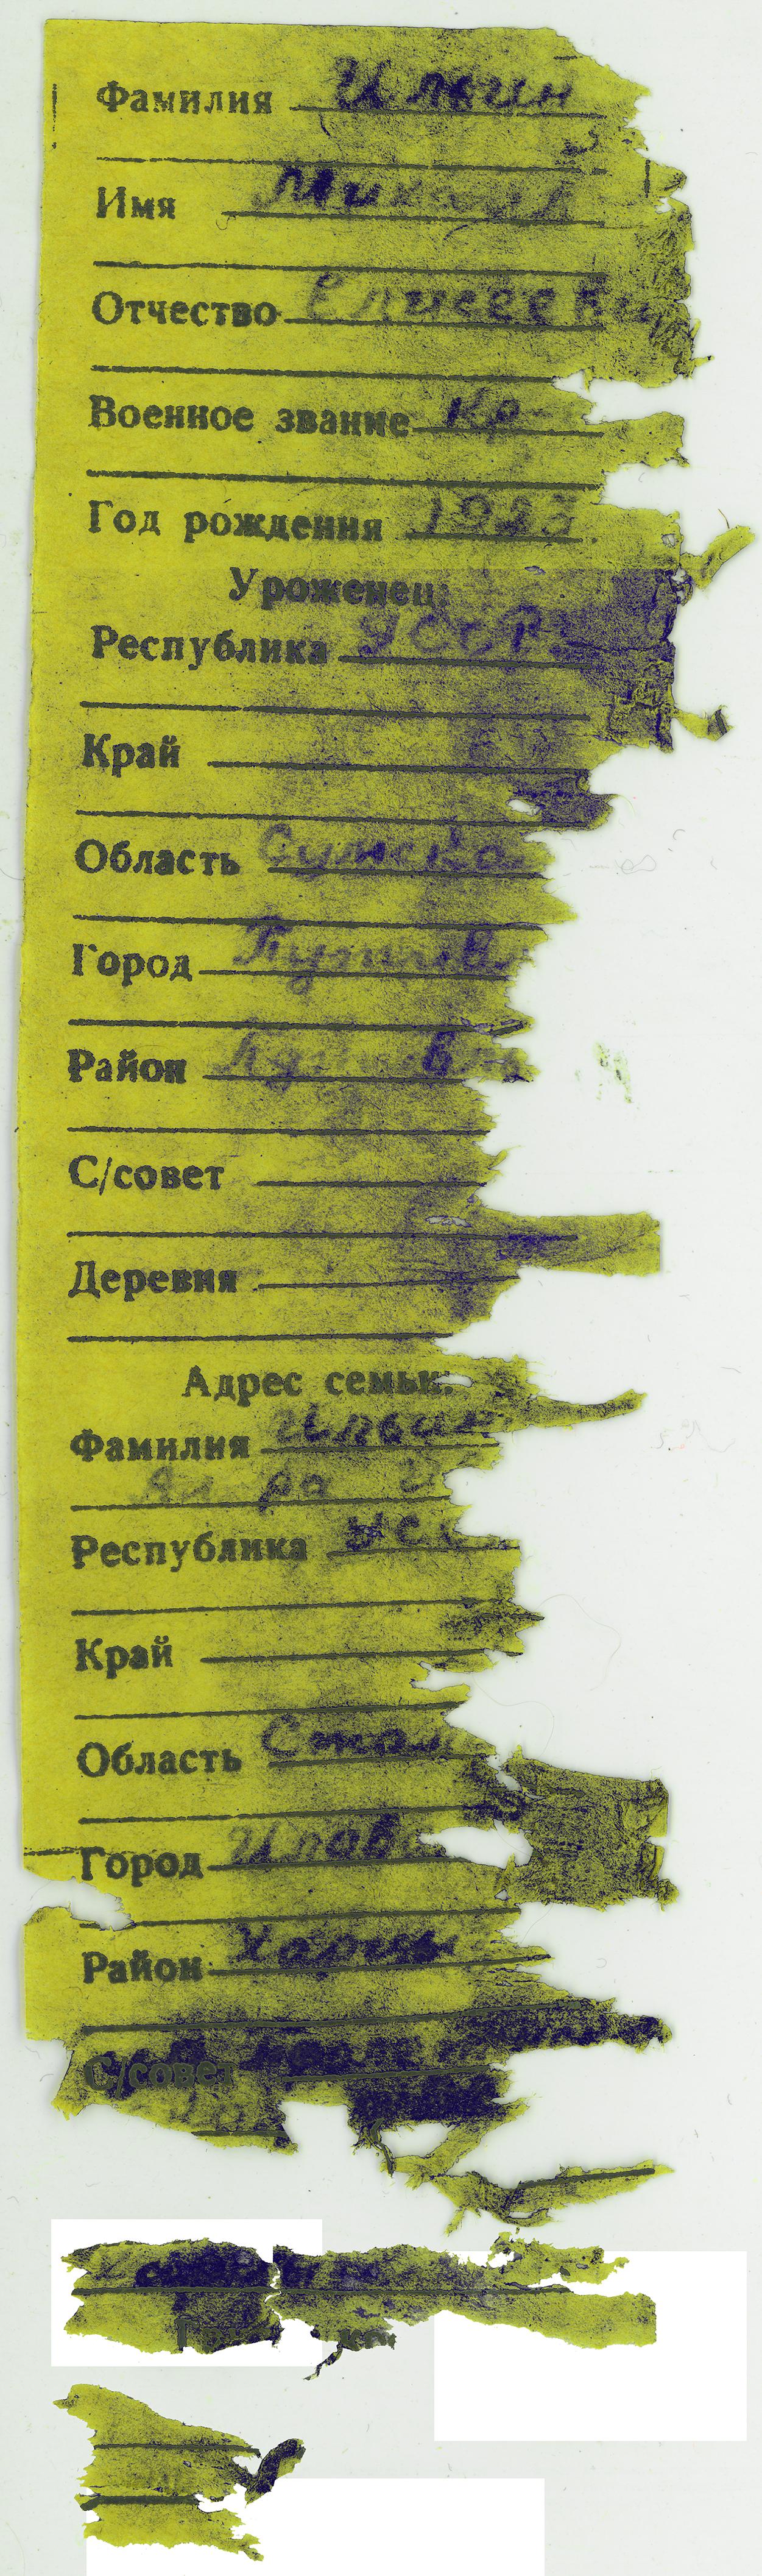 Фамилия Ильин
Имя Михаил
Отчество Елисеевич
Военное звание Кр-
Год рождения 1923
Уроженец:
Республика УССР
Край
Область Сумска
Город Путивль
Район Путив
С/совет
Деревня
Адрес семьи:
Фамилия Ильин
Республика УСС
Край
Область Стал
Город Илов
Район Харцы
С/совет